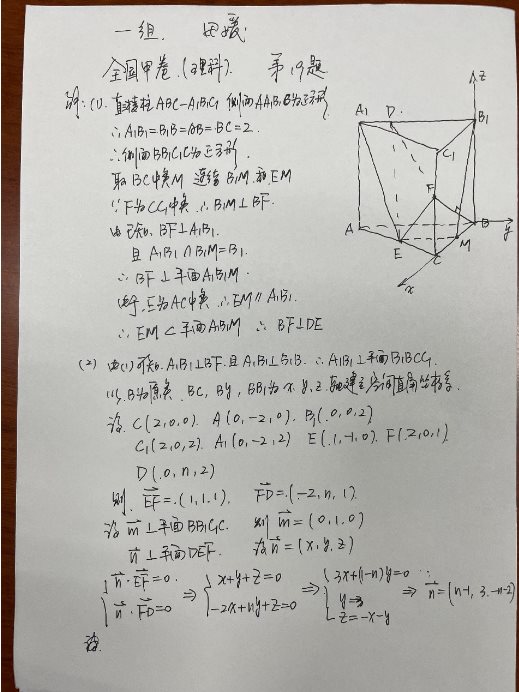 一组 田媛
全国甲卷(理科) 第19题
解:(1). 直棱柱ABC-A₁B₁C₁ 侧面AA₁B₁B为正方形
∴A₁B₁=B₁B=AB=BC=2.
∴侧面BB₁C₁C为正方形.
取BC中点M 连结B₁M 和EM
∵F为CC₁中点 ∴B₁M⊥BF.
由已知 BF⊥A₁B₁.
且A₁B₁∩B₁M=B₁.
∴BF⊥平面A₁B₁M.
由于E为AC中点 ∴EM∥A₁B₁.
∴EM⊂平面A₁B₁M ∴BF⊥DE
A₁ D B₁ z
C₁
F
A B y
E M
C
x
(2) 由(1)可知. A₁B₁⊥BF. 且A₁B₁⊥B₁B. ∴A₁B₁⊥平面B₁BCC₁
以B为原点 BC, By, BB₁为x. y. z. 轴建立空间直角坐标系.
设 C(2,0,0). A(0,-2,0). B₁(0,0,2).
C₁(2,0,2). A₁(0,-2,2) E(1,-1,0). F(2,0,1).
D(0,n,2)
则 EF=(1,1,1). FD=(-2,n,1).
设m⊥平面BB₁C₁C. 则m=(0,1,0)
n⊥平面DEF. 设n=(x,y,z)
{n·EF=0. n·FD=0 ⇒ {x+y+z=0 -2x+ny+z=0 ⇒ {3x+(1-n)y=0 y=3 z=-x-y ⇒ n=(n-1, 3. -n-2)